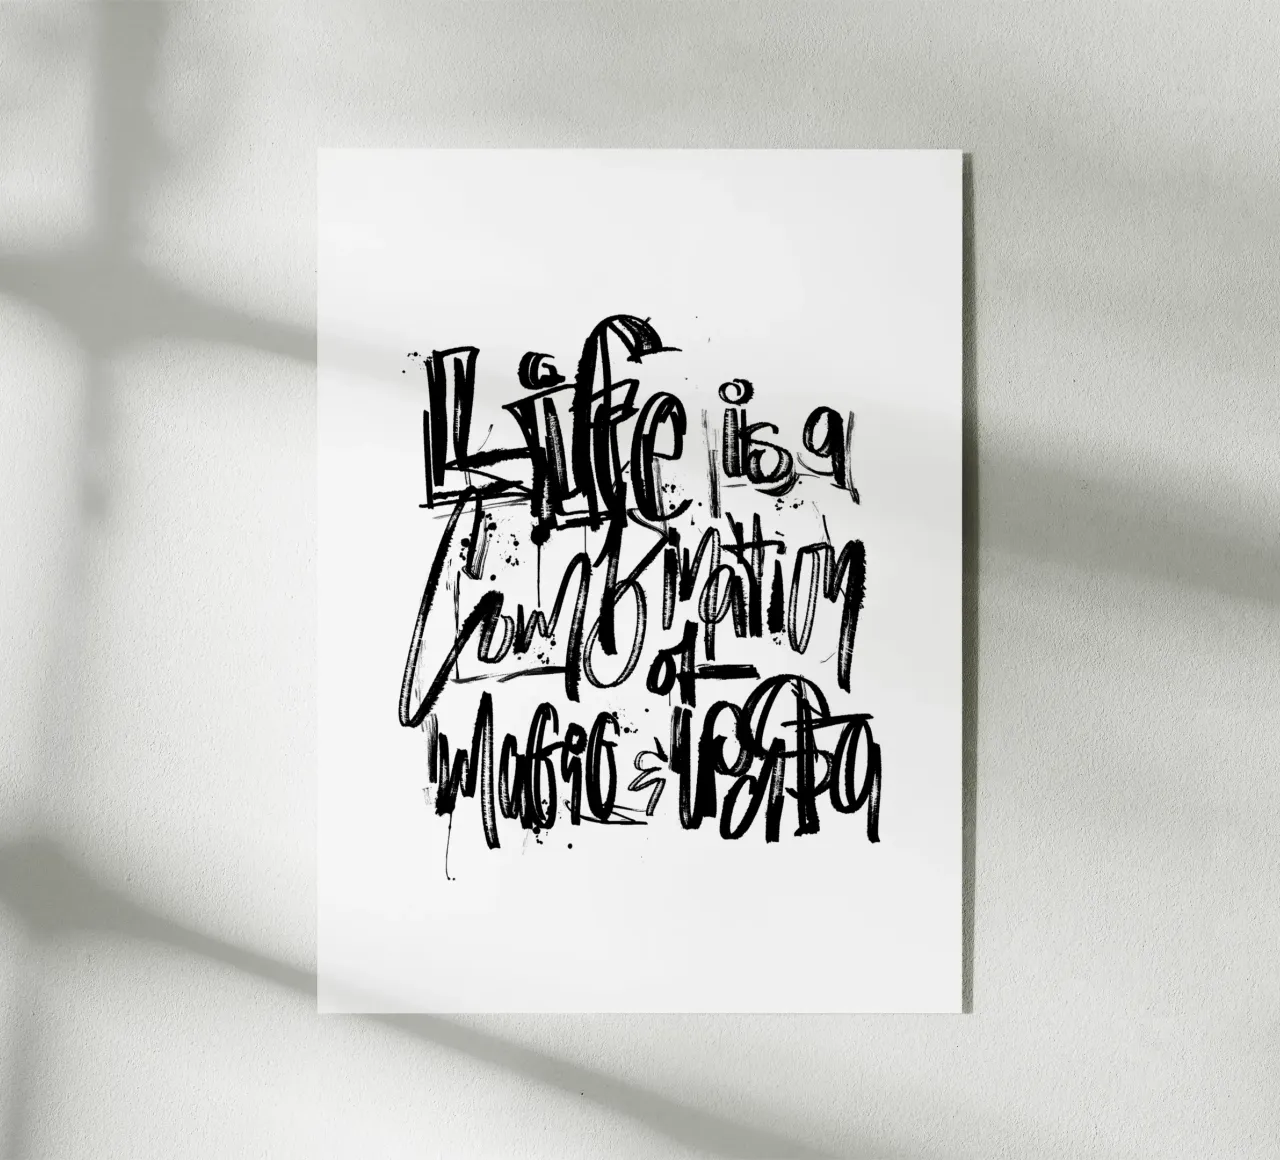 Life is a
Combination
of
Magic & Pasta